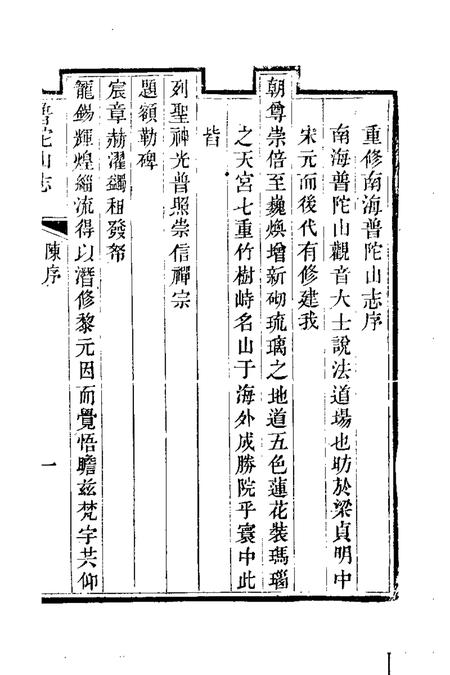 重修南海普陀山志序
南海普陀山觀音大士說法道場也昉於梁貞明中
宋元而後代有修建我
朝尊崇倍至巍煥增新砌琉璃之地道五色蓮花裝瑪瑙
之天宮七重竹樹峙名山于海外成勝院乎寰中此
皆
列聖神光普照崇信禪宗
題額勒碑
宸章赫濯蠲租發帑
寵錫輝煌緇流得以潛修黎元因而覺悟瞻茲梵宇共仰
普陀山志
陳序
一